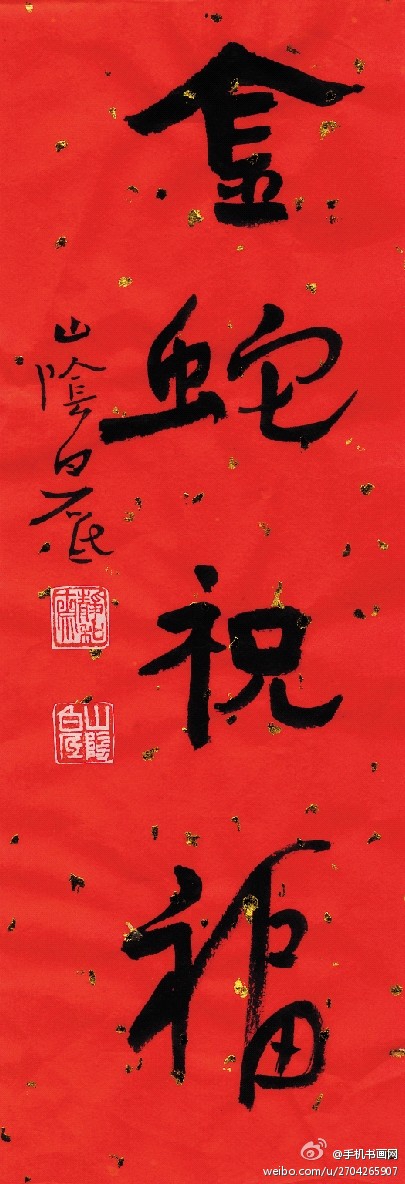 金蛇祝福
山陰白丁
山陰白丁
@手机书画网
weibo.com/u/2704265907